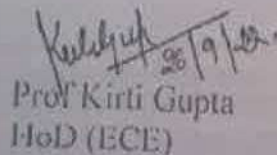 26/9/22
Prof Kirti Gupta
HoD (ECE)